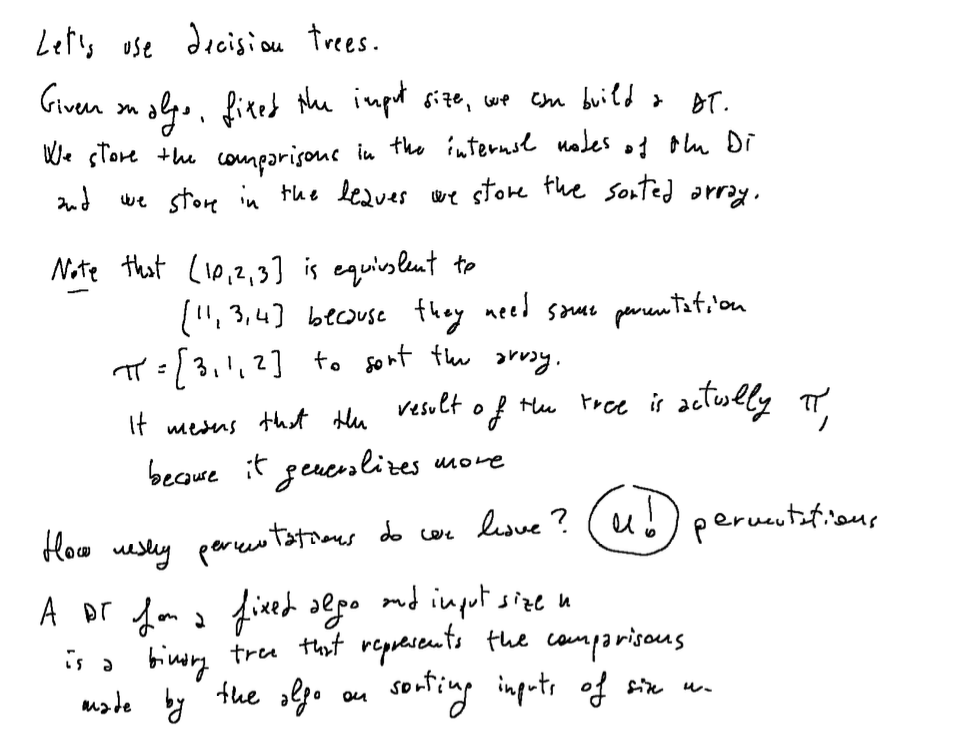 Let's use decision trees.
Given an algo, fixed the input size, we can build a DT.
We store the comparisons in the internal nodes of the DT
and we store in the leaves we store the sorted array.
Note that [10,2,3] is equivalent to
[11,3,4] because they need same permutation
π = [3,1,2] to sort the array.
It means that the result of the tree is actually π,
because it generalizes more
How many permutations do we have? n! permutations
A DT for a fixed algo and input size n
is a binary tree that represents the comparisons
made by the algo on sorting inputs of size n.